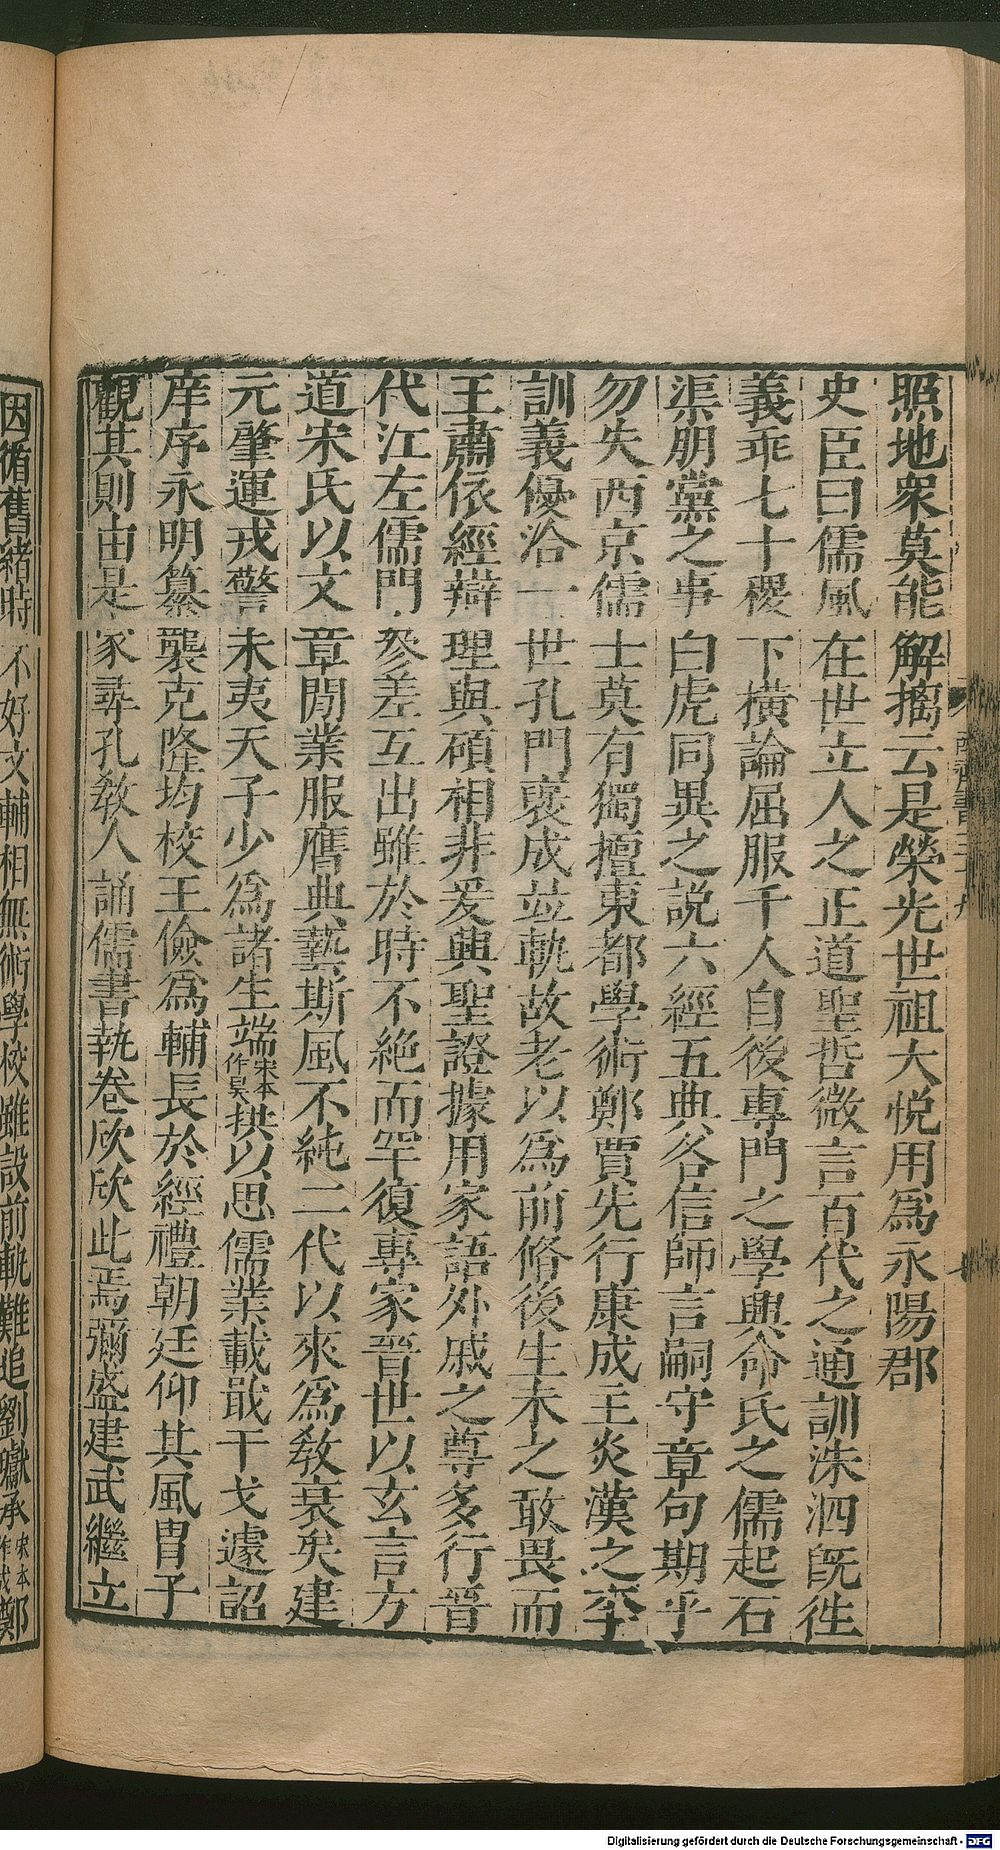 照地衆莫能解摛云是榮光世祖大悅用爲永陽郡
史臣曰儒風在世立人之正道聖哲微言百代之通訓洙泗旣徃
義乖七十稷下橫論屈服千人自後專門之學興命氏之儒起石
渠朋黨之事白虎同異之説六經五典各信師言嗣守章句期乎
勿失西京儒士莫有獨擅東都學術鄭賈先行康成主炎漢之季
訓義優洽一世孔門褒成竝軌故老以爲前脩後生未之敢畏而
王肅依經辯理與碩相非爰興聖證據用家語外戚之尊多行晉
代江左儒門參差互出雖於時不絶而罕復專家晉世以玄言方
道宋氏以文章閒業服膺典藝斯風不純二代以來爲教衰矣建
元肇運戎警未夷天子少爲諸生端宋本作㫤拱以思儒業載戢干戈遽詔
庠序永明纂襲克隆均校王儉爲輔長於經禮朝廷仰其風胄子
觀其則由是家尋孔教人誦儒書執卷欣欣此焉彌盛建武繼立
因循舊緒時不好文輔相無術學校雖設前軌難追劉瓛承宋本作成鄭
Digitalisierung gefördert durch die Deutsche Forschungsgemeinschaft - DFG